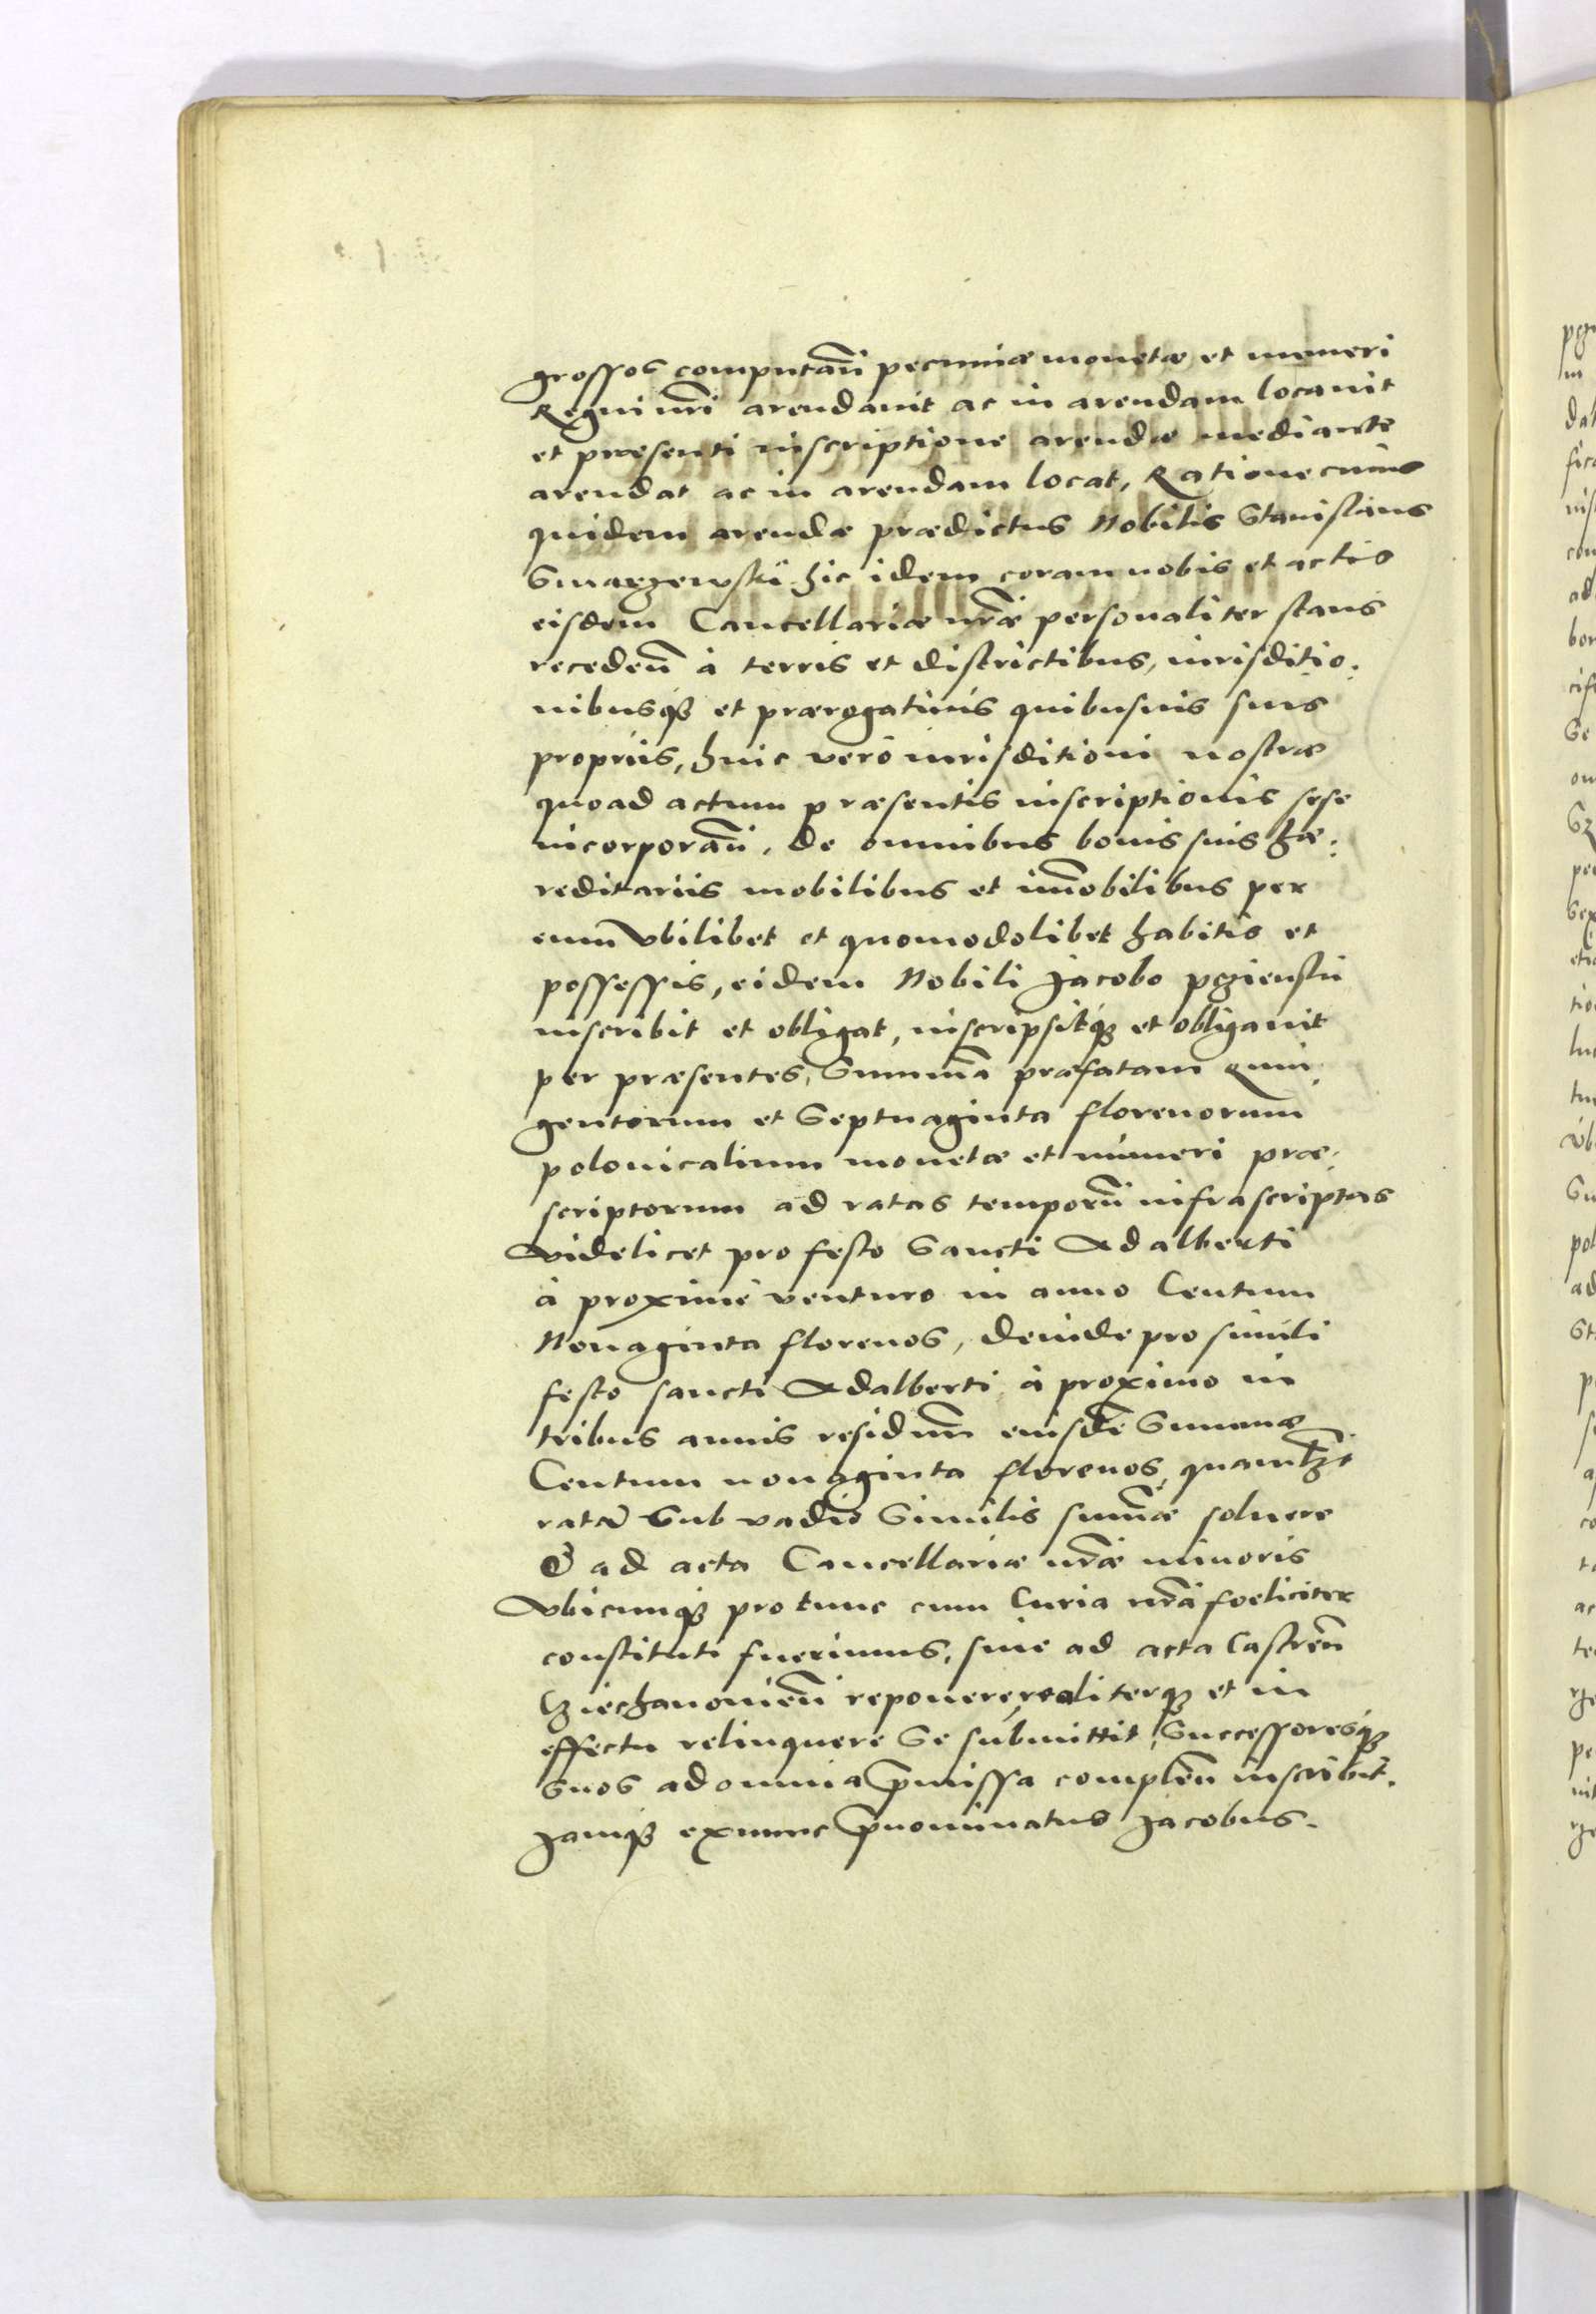 grossos computan̄ pecuniæ monetæ et numeri
Regni nr̄i arendavit ac in arendam locavit
et præsenti inscriptione arendæ mediante
arendat ac in arendam locat, Ratione cuius
quidem arendæ prædictus Nobilis Stanislaus
hic idem coram nobis et actis
eisdem Cancellariæ nr̄æ personaliter stans
receden̄ à terris et districtibus, iurisditio:
nibusq₃ et prærogativis quibusvis suis
propriis, huic verò iurisditioni nostræ
quoad actum præsentis inscriptionis sese
incorporan̄, de omnibus bonis suis hæ:
reditariis mobilibus et im̄obilibus per
eum vbilibet et quomodolibet habitis et
possessis, eidem Nobili Jacobo pgienskii
inscribit et obligat, inscripsitq₃ et obligavit
per præsentes, Summā præfatam quin
gentorum et Septuaginta florenorum
polonicalium monetæ et numeri præ:
scriptorum ad ratas temporū infrascriptas
videlicet pro festo Sancti Adalberti
à proximè venturo in anno Centum
Nonaginta florenos, deinde pro simili
festo sancti Adalberti à proximo in
tribus annis residuum eiusdē Summæ
Centum nonaginta florenos, quamlibꝫt
ratā Sub vadio Similis sum̄æ solvere
& ad acta Cancellariæ nr̄æ minoris
vbicunq₃ protunc cum Curia nr̄a fœliciter
constituti fuerimus, sive ad acta Castren̄
Cziechanovien̄ reponere, realiterq₃ et in
effectu relinquere Se submittit, Successoresq₃
Suos ad omnia p̄missa complen̄ inscribit.
Jamq₃ exnunc p̄nominatus Jacobus.